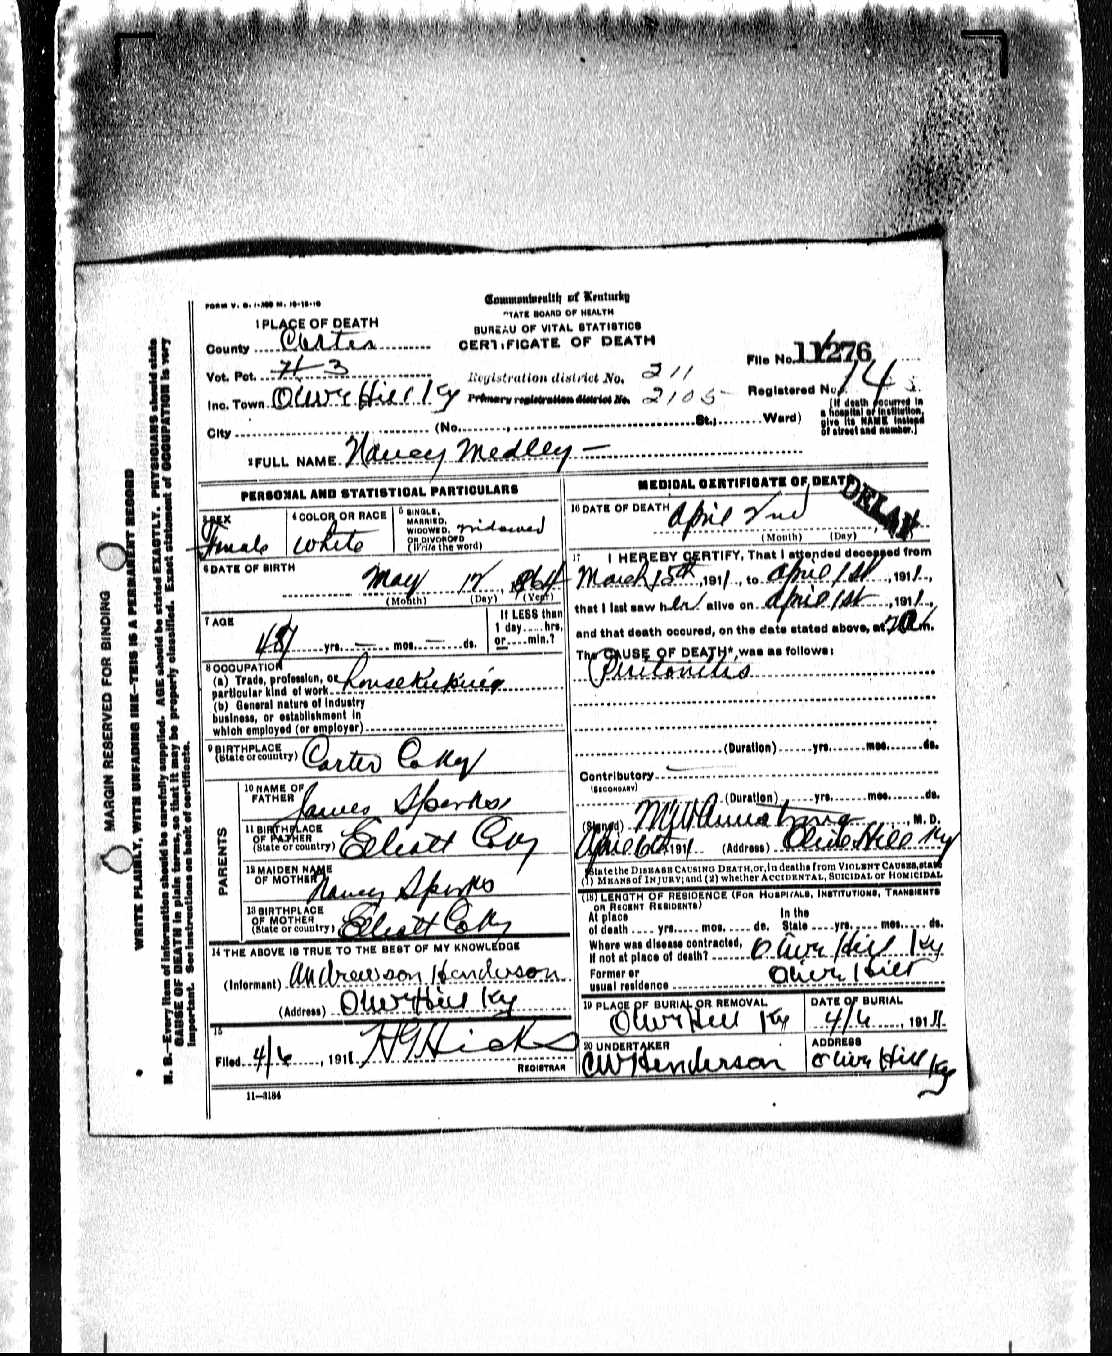 FORM V. S. 1-
Commonwealth of Kentucky
STATE BOARD OF HEALTH
BUREAU OF VITAL STATISTICS
CERTIFICATE OF DEATH
1 PLACE OF DEATH
County Carter
Vot. Pct. # 3
Inc. Town Olive Hill Ky
City (No. , St.; Ward)
Registration district No. 211
Primary registration district No. 2105
File No. 11276
Registered No. 14
(If death occurred in
a hospital or institution,
give its NAME instead
of street and number.)
2 FULL NAME Nancy Medley —
PERSONAL AND STATISTICAL PARTICULARS
3 SEX
Female
4 COLOR OR RACE
White
5 SINGLE,
MARRIED,
WIDOWED,
OR DIVORCED
(Write the word)
widowed
6 DATE OF BIRTH
May 12, 1864
(Month) (Day) (Year)
7 AGE
yrs. — mos. — ds.
If LESS than
1 day.....hrs.
or.....min.?
8 OCCUPATION
(a) Trade, profession, or
particular kind of work housekeeking
(b) General nature of industry
business, or establishment in
which employed (or employer)
9 BIRTHPLACE
(State or country) Carter Co Ky
PARENTS
10 NAME OF
FATHER James Sparks
11 BIRTHPLACE
OF FATHER
(State or country) Elliott Co Ky
12 MAIDEN NAME
OF MOTHER Nancy Sparks
13 BIRTHPLACE
OF MOTHER
(State or country) Elliott Co Ky
14 THE ABOVE IS TRUE TO THE BEST OF MY KNOWLEDGE
(Informant) Andrewson Henderson
(Address) Olive Hill Ky
15
Filed 4/6, 1911 H G Hicks
REGISTRAR
11—3184
MEDICAL CERTIFICATE OF DEATH
DELAY
16 DATE OF DEATH April 2nd
(Month) (Day)
17 I HEREBY CERTIFY, That I attended deceased from
March 15th, 1911, to April 1st, 1911,
that I last saw her alive on April 1st, 1911,
and that death occured, on the date stated above, at m.
The CAUSE OF DEATH*, was as follows:
Peritonitis
(Duration) yrs. mos. ds.
Contributory
(SECONDARY)
(Duration) yrs. mos. ds.
(Signed) Armstrong, M. D.
April 6th 1911 (Address) Olive Hill Ky
State the DISEASE CAUSING DEATH, or, in deaths from VIOLENT CAUSES, state
(1) MEANS of INJURY; and (2) whether ACCIDENTAL, SUICIDAL OR HOMICIDAL
(18) LENGTH OF RESIDENCE (FOR HOSPITALS, INSTITUTIONS, TRANSIENTS
OR RECENT RESIDENTS)
At place In the
of death yrs. mos. ds. State yrs. mos. ds.
Where was disease contracted,
If not at place of death? Olive Hill Ky
Former or
usual residence Olive Hill
19 PLACE OF BURIAL OR REMOVAL
Olive Hill Ky
DATE OF BURIAL
4/6, 1911
20 UNDERTAKER
CW Henderson
ADDRESS
Olive Hill Ky
MARGIN RESERVED FOR BINDING
WRITE PLAINLY, WITH UNFADING INK—THIS IS A PERMANENT RECORD
N. B.—Every item of information should be carefully supplied. AGE should be stated EXACTLY. PHYSICIANS should state
CAUSE OF DEATH in plain terms, so that it may be properly classified. Exact statement of OCCUPATION is very
important. See instructions on back of certificate.